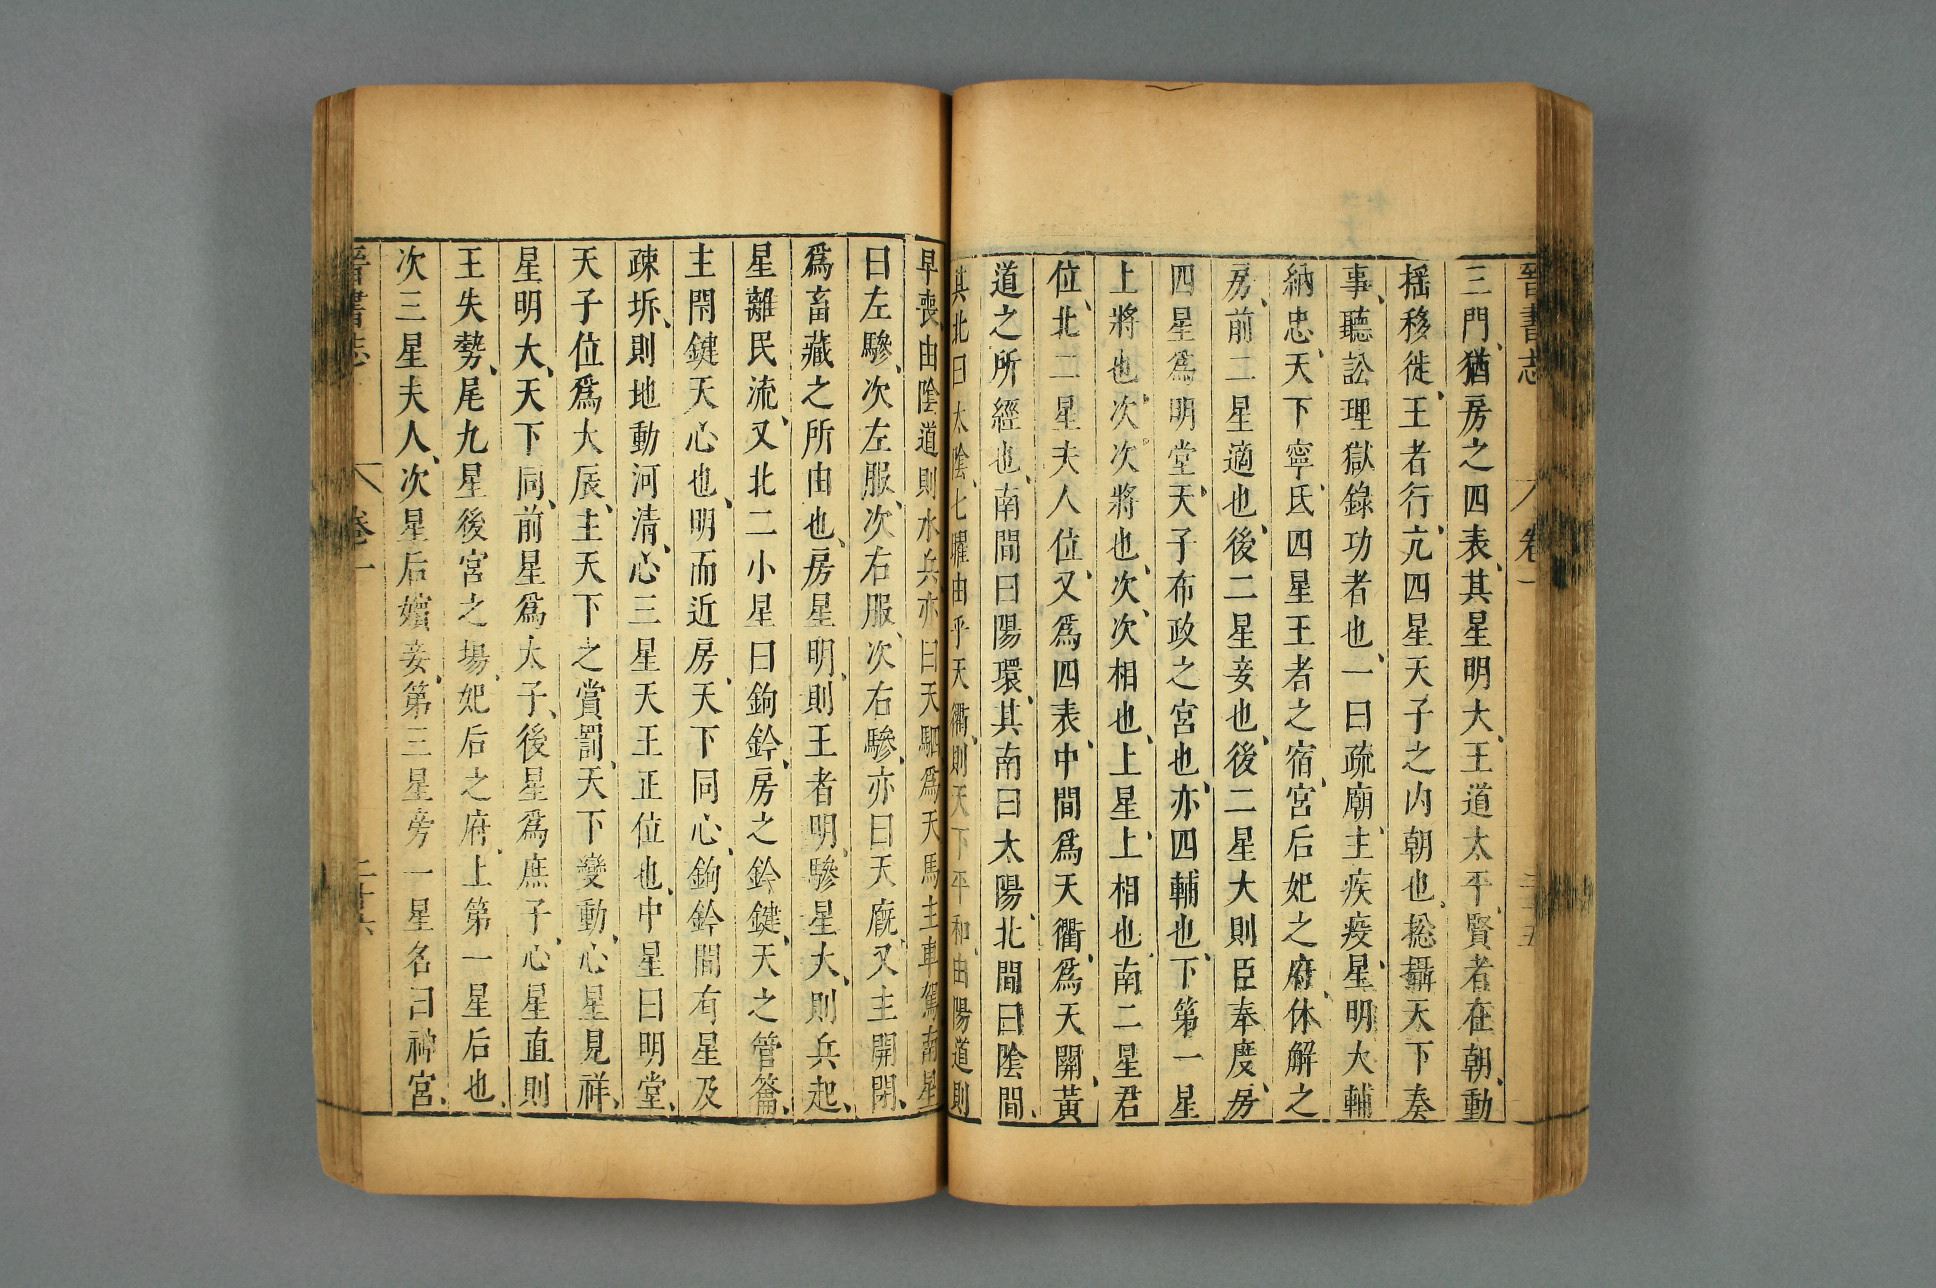 晉書志 卷一
三門、猶房之四表、其星明大、王道太平、賢者在朝、動
揺移徙、王者行、亢四星天子之内朝也、揔攝天下奏
事、聽訟理獄錄功者也、一曰疏廟、主疾疫、星、明大輔
納忠、天下寧、氐四星王者之宿宫、后妃之府、休解之
房、前二星適也、後二星妾也、後二星大則臣奉度、房
四星爲明堂、天子布政之宮也、亦四輔也、下第一星
上將也、次、次將也、次、次相也、上星、上相也、南二星君
位、北二星夫人位、又爲四表、中間爲天衢、爲天關、黃
道之所經也、南間曰陽環、其南曰太陽、北間曰陰間、
其北曰太陰、七曜由乎天衢、則天下平和、由陽道則
早喪、由陰道則水兵、亦曰天駟、爲天馬主車駕、南星
曰左驂、次左服、次右服、次右驂、亦曰天廐、又主開閉、
爲畜藏之所由也、房星明、則王者明、驂星大、則兵起、
星離民流、又北二小星曰鉤鈐、房之鈐鍵、天之管籥、
主閉鍵天心也、明而近房、天下同心、鉤鈐間有星及
疎坼、則地動河清、心三星天王正位也、中星曰明堂、
天子位爲大辰、主天下之賞罰、天下變動、心星見祥、
星明大、天下同、前星爲太子、後星爲庶子、心星直則
王失勢、尾九星後宮之場、妃后之府、上第一星后也、
次三星夫人、次星后嬪妾、第三星旁一星名曰神宮、
晉書志 卷一 二十六